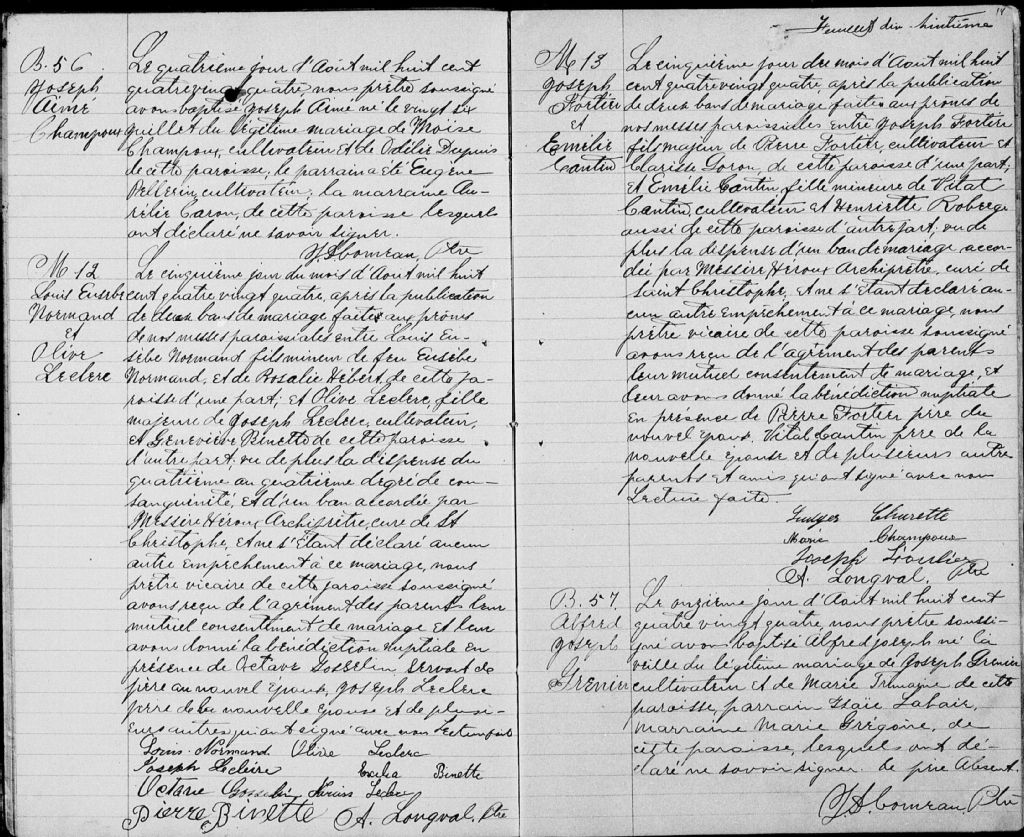 B. 56
Joseph
Aimé
Champoux
Le quatrième jour d'Août mil huit cent
quatrevingt quatre, nous prêtre soussigné
avons baptisé Joseph Aimé né le vingt six
juillet du légitime mariage de Moïse
Champoux, cultivateur et de Odélie Dupuis
de cette paroisse; le parrain a été Eugène
Pellerin, cultivateur; la marraine Au-
rélie Caron, de cette paroisse lesquels
ont déclaré ne savoir signer.
Ptre
M 12
Louis Eusèbe
Normand
et
Olive
Leclerc
Le cinquième jour du mois d'Aout mil huit
cent quatre vingt quatre, après la publication
de deux bans de mariage faites aux prônes
de nos messes paroissiales entre Louis Eu-
sèbe Normand fils mineur de feu Eusèbe
Normand, et de Rosalie Hébert, de cette pa-
roisse d'une part; et Olive Leclerc, fille
majeure de Joseph Leclerc, cultivateur,
et Geneviève Binette de cette paroisse
d'autre part; vu de plus la dispense du
quatrième au quatrième degré de con-
sanguinité, et d'un ban accordée par
Messire Héroux Archiprêtre, curé de St
Christophe, et ne s'étant déclaré aucun
autre empêchement à ce mariage, nous
prêtre vicaire de cette paroisse soussigné
avons reçu de l'agrément des parents leur
mutuel consentement de mariage et leur
avons donné la bénédiction nuptiale en
présence de Octave Gosselin servant de
père au nouvel époux, Joseph Leclerc
père de la nouvelle épouse et de plusi-
eurs autres qui ont signé avec nous Lecture faite
Louis Normand Olive Leclerc
Joseph Lecleire Binette
Octave Gosselin Leclerc
Pierre Binette A. Longval, Ptre
14
Feuillet dix-huitième
M 13
Joseph
Fortier
et
Emélie
Cantin
Le cinquième jour du mois d'Août mil huit
cent quatre vingt quatre, après la publication
de deux bans de mariage faites aux prônes de
nos messes paroissiales entre Joseph Fortier
fils majeur de Pierre Fortier, cultivateur et
Clarisse de cette paroisse d'une part;
et Emélie Cantin, fille mineure de Vital
Cantin, cultivateur et Henriette Roberge
aussi de cette paroisse d'autre part, vu de
plus la dispense d'un ban de mariage accor-
dée par Messire Héroux Archiprêtre, curé de
Saint Christophe, et ne s'étant déclaré au-
cun autre empêchement à ce mariage, nous
prêtre vicaire de cette paroisse soussigné
avons reçu de l'agrément des parents
leur mutuel consentement de mariage, et
leur avons donné la bénédiction nuptiale
en présence de Pierre Fortier père du
nouvel époux, Vital Cantin père de la
nouvelle épouse et de plusieurs autre
parents et amis qui ont signé avec nous
Lecture faite.
Marie Champoux
Joseph
A. Longval, Ptre
B. 57.
Alfred
Joseph
Grenier
Le onzième jour d'Août mil huit cent
quatre vingt quatre, nous prêtre soussi-
gné avons baptisé Alfred Joseph né la
veille du légitime mariage de Joseph Grenier
cultivateur et de Marie de cette
paroisse, parrain Isaïe
marraine Marie Grégoire, de
cette paroisse, lesquels ont dé-
claré ne savoir signer le père Absent.
Ptre